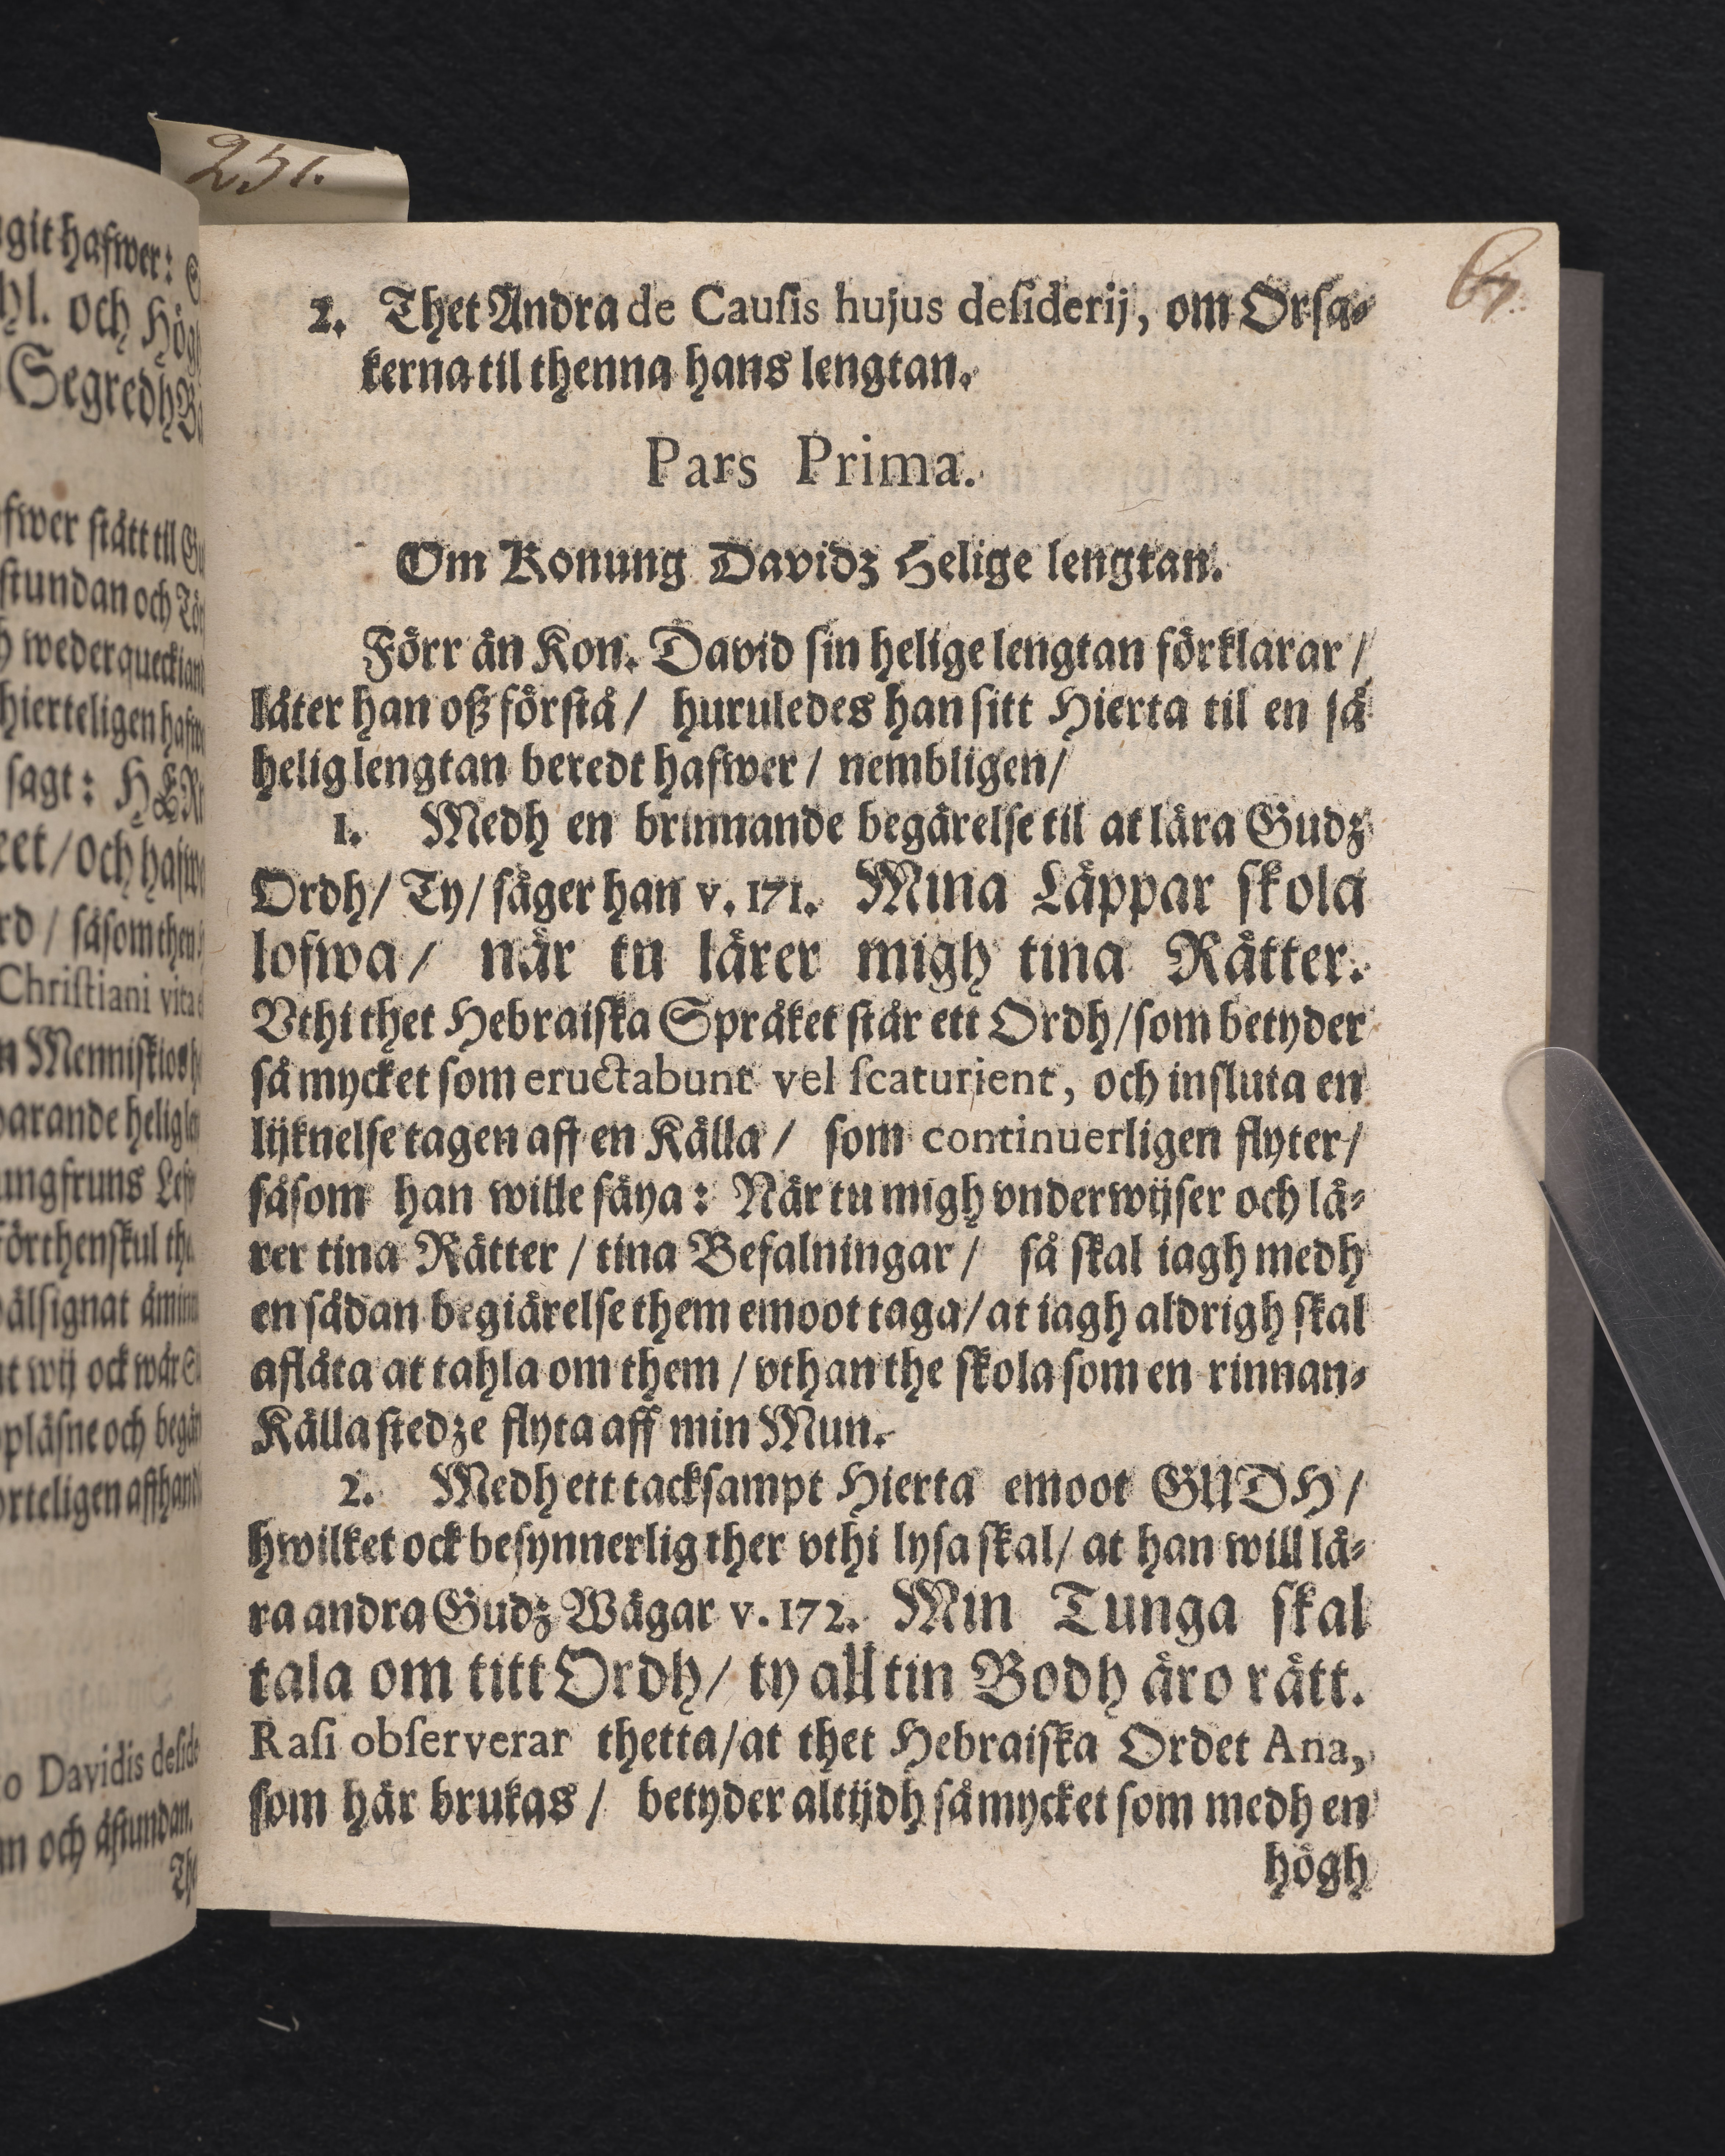 251.
2. Thet Andra de Causis hujus desiderij, om Orsa-
kerna til thenna hans lengtan.
Pars Prima.
Om Konung Davidz Helige lengtan.
Förr än Kon. David sin helige lengtan förklarar /
låter han oß förstå / huruledes han sitt Hierta til en så
helig lengtan beredt hafwer / nembligen /
1. Medh en brinnande begärelse til at lära Gudz
Ordh / Ty / säger han v. 171. Mina Läppar skola
lofwa / när tu lärer migh tina Rätter.
Vthi thet Hebraiska Språket står ett Ordh / som betyder
så mycket som eructabunt vel scaturient, och insluta en
lijknelse tagen aff en Källa / som continuerligen flyter /
såsom han wille säya : När tu migh vnderwijser och lä-
rer tina Rätter / tina Befalningar / så skal iagh medh
en sådan begiärelse them emoot taga / at iagh aldrigh skal
aflåta at tahla om them / vthan the skola som en rinnan-
Källa stedze flyta aff min Mun.
2. Medh ett tacksampt Hierta emoot GUDH /
hwilket ock besynnerlig ther vthi lysa skal / at han will lä-
ra andra Gudz Wägar v. 172. Min Tunga skal
tala om titt Ordh / ty all tin Bodh äro rätt.
Rasi observerar thetta / at thet Hebraiska Ordet Ana,
som här brukas / betyder altijdh så mycket som medh en
högh